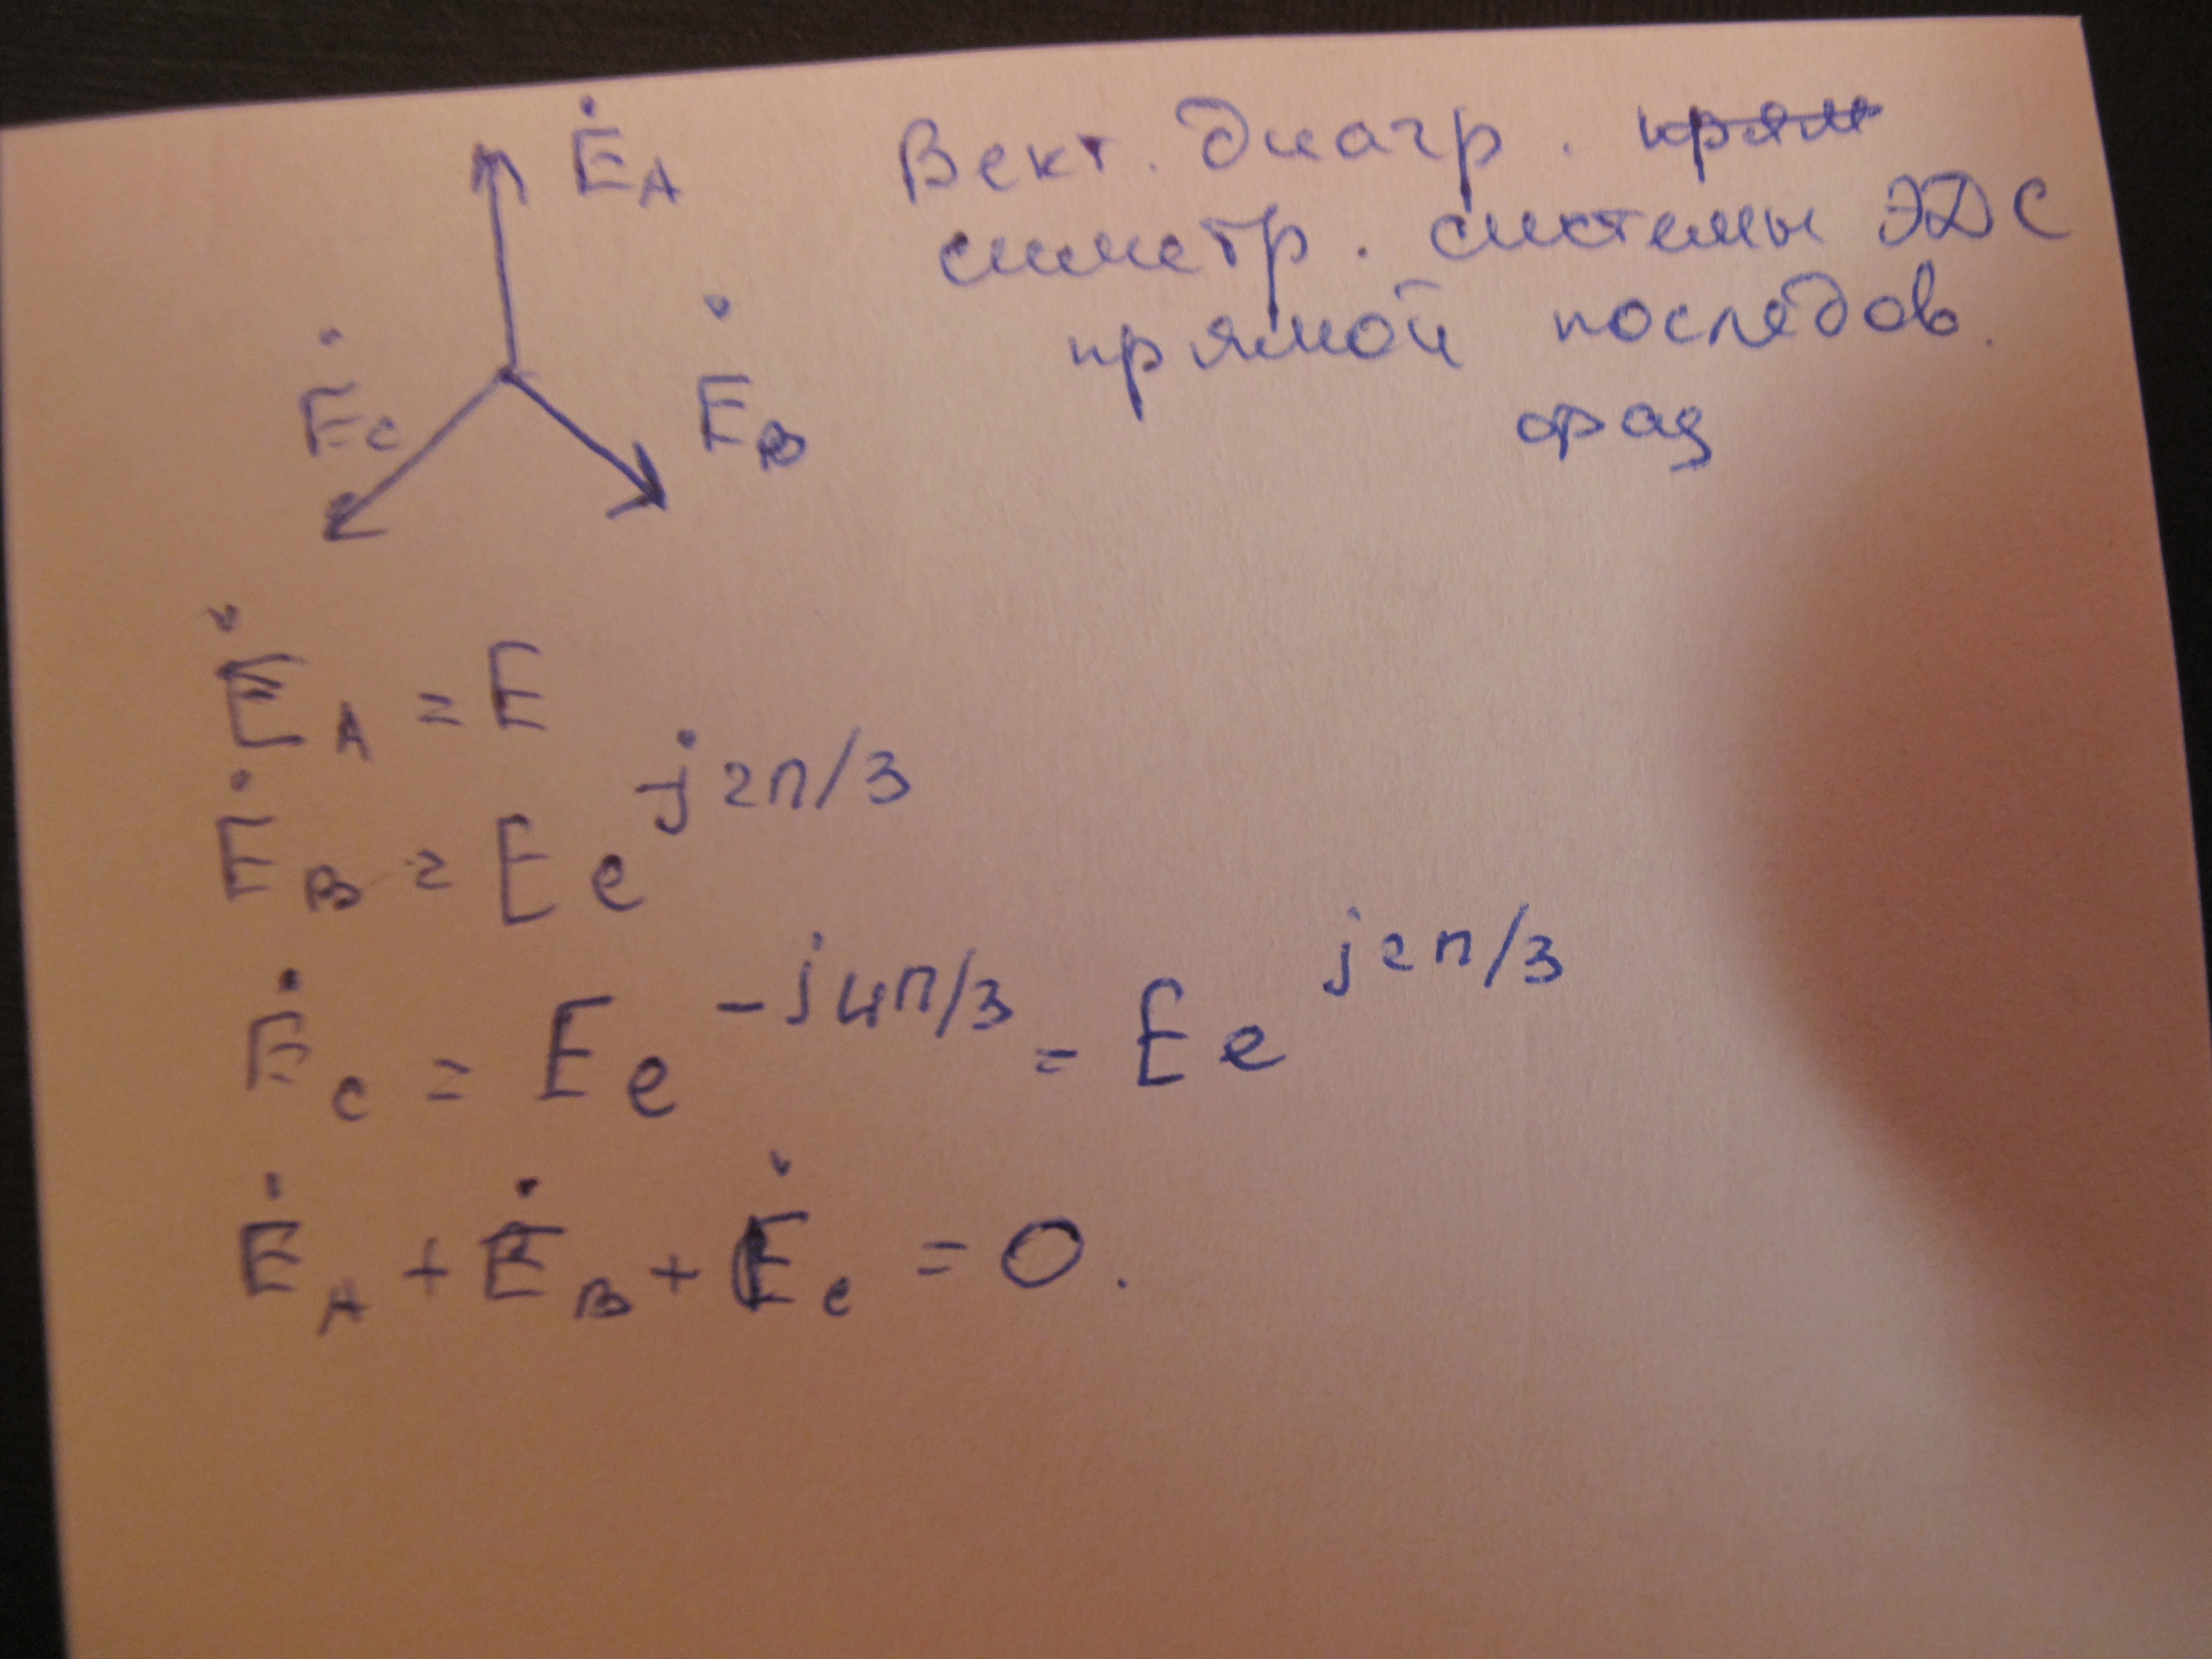 Ė_A
Вект. диагр. прям
симетр. системы ЭДС
прямой последов.
фаз
Ė_C
Ė_B
Ė_A = E
Ė_B = E e^{-j2π/3}
Ė_C = E e^{-j4π/3} = E e^{j2π/3}
Ė_A + Ė_B + Ė_C = 0.